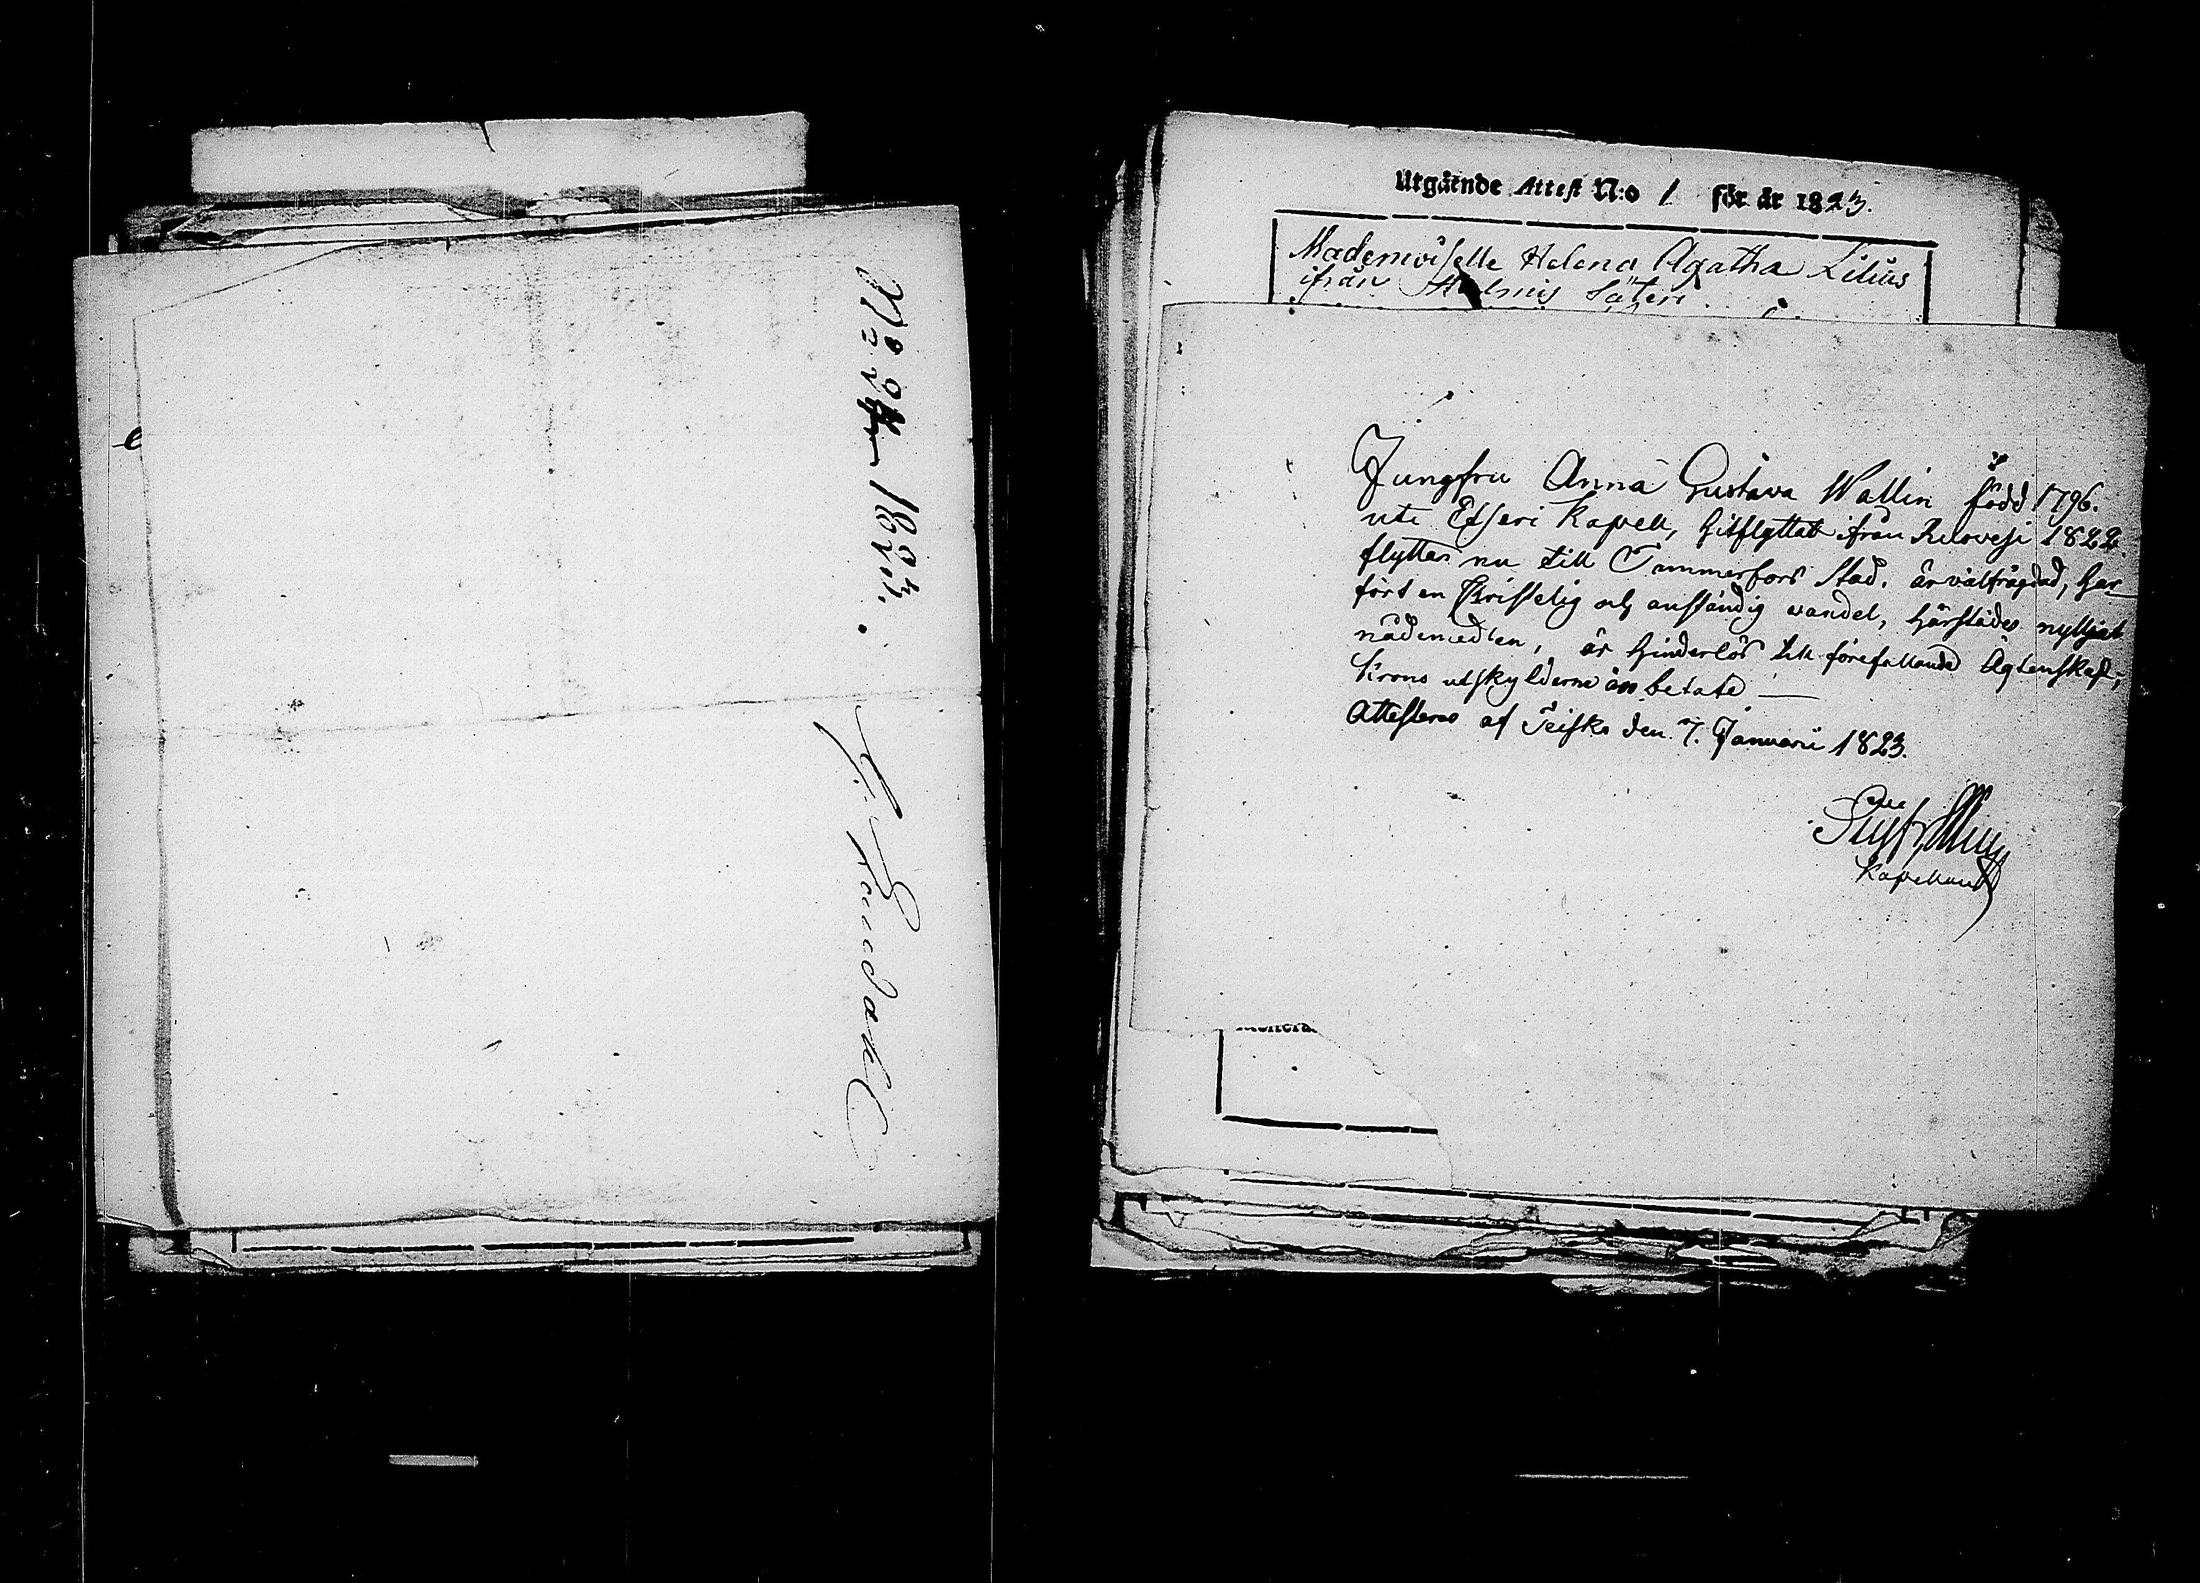 No 2 för 1823.
Utgående Attest N:o 1 för år 1823.
Mademoiselle Helena Agatha Lilius
ifrån Säteri
Jungfru Anna Gustava Wallin född 1796.
uti Etseri Kapell, hitflyttat ifrån Ruovesi 1822
flyttar nu till Tammerfors Stad. är välfrägdad, har
fört en Kristelig och anständig vandel, härstädes nyttjat
nådemedlen, är hinderlös till förefallande Ägtenskap;
Krono utskylderne äro betalte —
Attesteras af Teisko den 7. Januarii 1823.
Kapellan